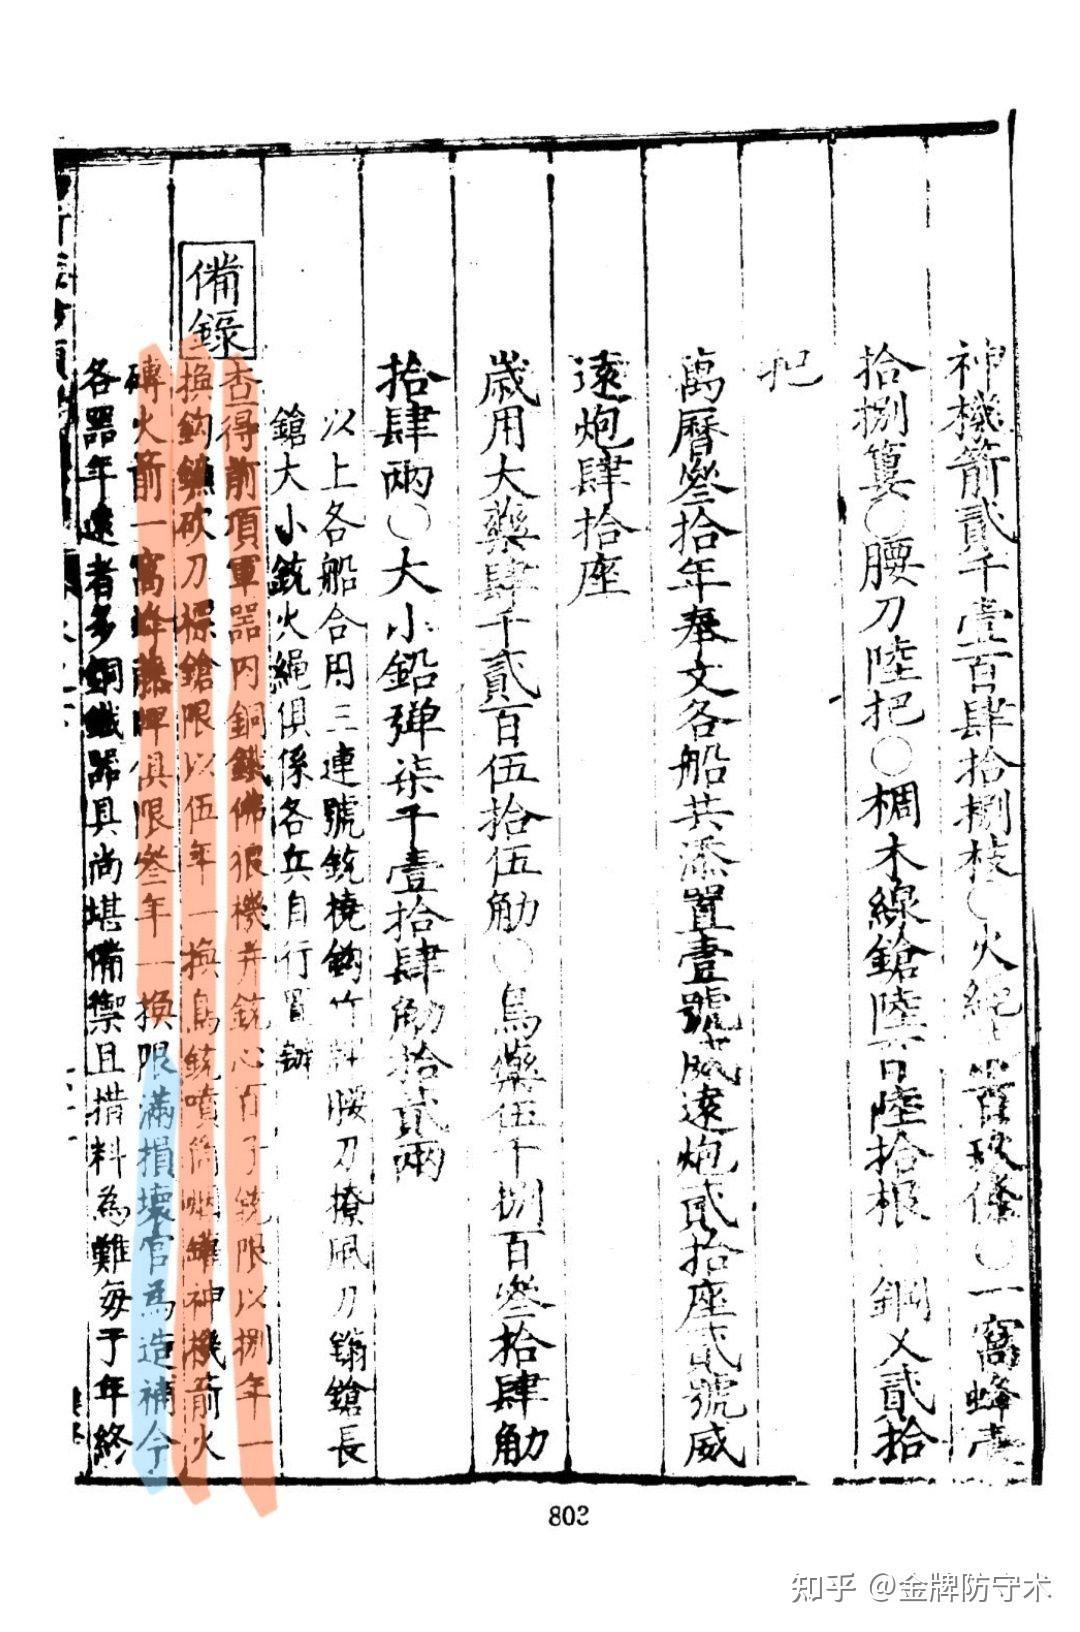 神機箭貳千壹百肆拾捌枝○火繩 百 條○一窩蜂壹
拾捌簍○腰刀陸把○椆木線鎗陸百陸拾根 鋼叉貳拾
把
萬曆叄拾年奉文各船共添置壹號威遠炮貳拾座貳號威
遠炮肆拾座
歲用大藥肆千貳百伍拾伍觔○鳥藥伍千捌百叄拾肆觔
拾肆兩○大小鉛弹柒千壹拾肆觔拾貳兩
以上各船合用三連號銃橈鈎竹 腰刀撩 刀鎗長
鎗大小銃火繩俱係各兵自行置辦
備錄
查得前項軍器内銅鐵佛狼機并銃心百子銃限以捌年一
換鈎鐮砍刀標鎗限以伍年一換鳥銃噴筒 罐神機箭火
磚火箭一窩蜂藤牌俱限叄年一換限滿損壞官為造補今
各器年遠者多銅鐵器具尚堪備禦且措料為難每于年終
802
知乎 @金牌防守术